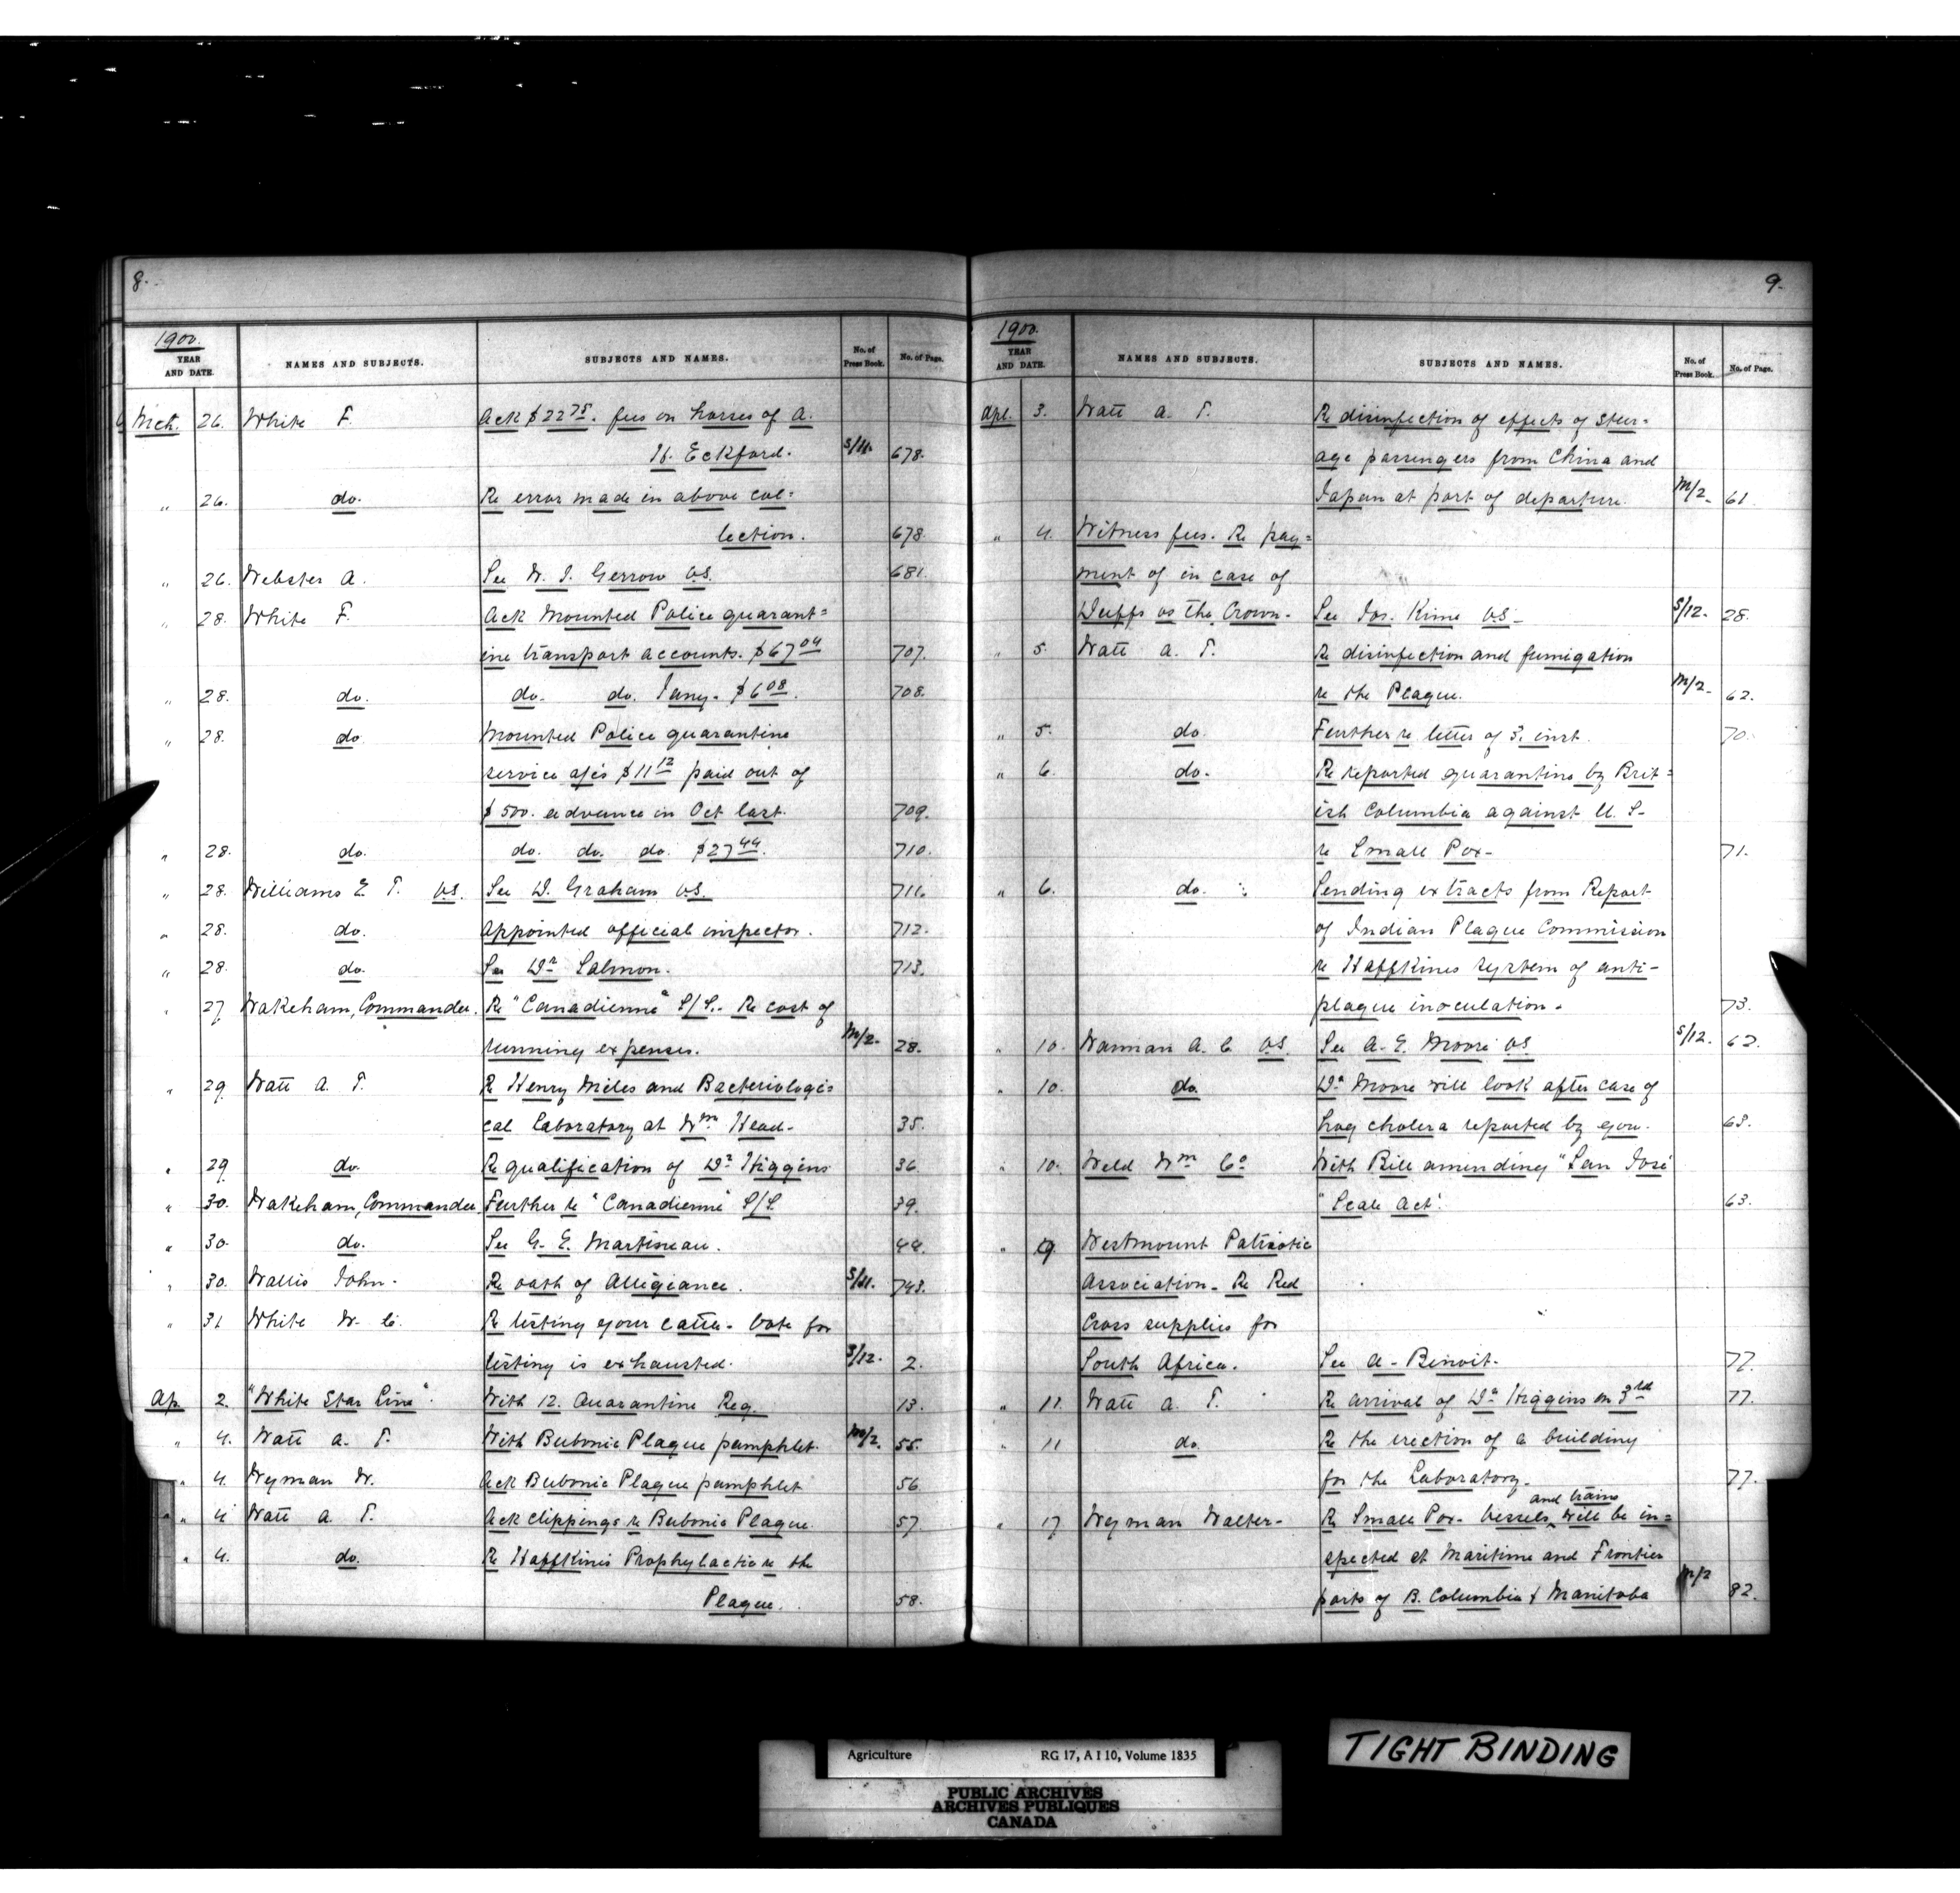 8.
1900.
YEAR AND DATE. NAMES AND SUBJECTS. SUBJECTS AND NAMES. No. of Press Book. No. of Page.
Mch. 26. White F. Ack $22 75. fees on horses of A.
H. Eckford. S/11. 678.
" 26. do. Re error made in above col=
lection. 678.
" 26. Webster A. See W. J. Gerrow V.S. 681.
" 28. White F. Ack Mounted Police quarant=
ine transport accounts. $67 04 707.
" 28. do. do. do. Jany. $6 08. 708.
" 28. do. Mounted Police quarantine
service a/cs $11 12 paid out of
$500. advance in Oct last. 709.
" 28. do. do. do. do. $27 44. 710.
" 28. Williams E T. V.S. See D. Graham V.S. 711.
" 28. do. Appointed official inspector. 712.
" 28. do. See Dr Salmon. 713.
" 27. Wakeham, Commander. Re "Canadienne" S/S. - Re cost of
running expenses. M/2. 28.
" 29. Watt A. T. Re Henry Miles and Bacteriologi=
cal Laboratory at Wm Head - 35.
" 29. do. Re qualification of Dr Higgins 36.
" 30. Wakeham, Commander. Further re "Canadienne" S/S. 39.
" 30. do. See G. E. Martineau. 44.
" 30. Wallis John. Re oath of Allegiance. S/11. 743.
" 31 White W. C. Re testing your cattle - Vote for
testing is exhausted. S/12. 2.
Ap. 2. "White Star Line". With 12. Quarantine Reg. 13.
" 4. Watt A. T. With Bubonic Plague pamphlet. M/2. 55.
" 4. Wyman W. Ack Bubonic Plague pamphlet 56.
" 4. Watt A. T. Ack clippings re Bubonic Plague. 57.
" 4. do. Re Haffkine's Prophylactic re the
Plague. 58.
9.
1900.
YEAR AND DATE. NAMES AND SUBJECTS. SUBJECTS AND NAMES. No. of Press Book. No. of Page.
Apl. 3. Watt A. T. Re disinfection of effects of Steer=
age passengers from China and
Japan at port of departure. M/2. 61.
" 4. Witness fees. Re pay=
ment of in case of
Duffs vs the Crown. See Jos. Kime V.S. S/12. 28.
" 5. Watt A. T. Re disinfection and fumigation
re the Plague. M/2. 62.
" 5. do. Further re letter of 3. inst. 70.
" 6. do. Re reported quarantine by Brit=
ish Columbia against U. S.
re Small Pox - 71.
" 6. do. Sending extracts from Report
of Indian Plague Commission
re Haffkines system of anti-
plague inoculation. 73.
" 10. Warman A. C. V.S. See A. E. Moore V.S. S/12. 62.
" 10. do. Dr Moore will look after case of
hog cholera reported by you. 63.
" 10. Weld Wm Co With Bill amending "San José
"Scale Act". 63.
" 9 Westmount Patriotic
Association - Re Red
Cross supplies for
South Africa. See A - Benoit. 77.
" 11. Watt A. T. Re arrival of Dr Higgins on 3rd 77.
" 11 do. Re the erection of a building
for the Laboratory. 77.
" 17 Wyman Walter - Re Small Pox - Vessels and trains will be in=
spected at Maritime and Frontier
ports of B. Columbia & Manitoba M/2 82.
TIGHT BINDING
Agriculture RG 17, A I 10, Volume 1835
PUBLIC ARCHIVES
ARCHIVES PUBLIQUES
CANADA